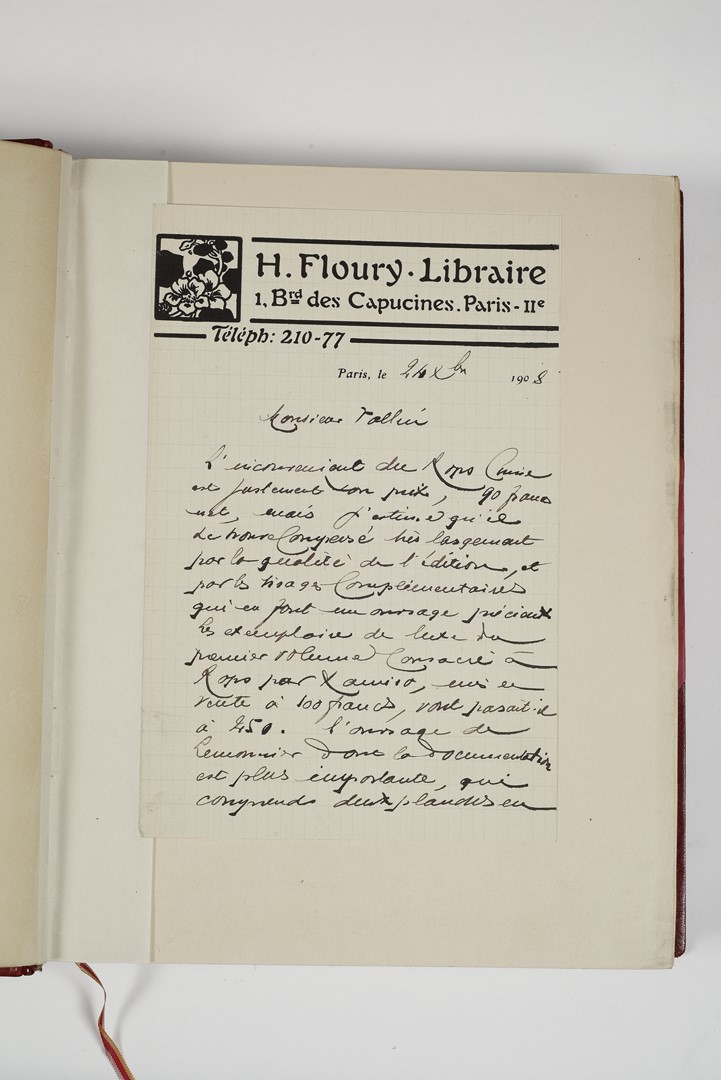 H. Floury · Libraire
1, Brd des Capucines. Paris - IIe
Téléph: 210-77
Paris, le 24 Xbre 1908
Monsieur
L'inconvénient du Rops
est justement son prix, 90 francs
net, mais j'estime qu'il
se trouve compensé très largement
par la qualité de l'édition, et
par les tirages complémentaires
qui en font un ouvrage précieux
Les exemplaires de luxe du
premier volume consacré à
Rops par Ramiro, mis en
vente à 100 francs, vont paraît-il
à 250. L'ouvrage de
Lemonnier dont la documentation
est plus importante, qui
comprends deux planches en